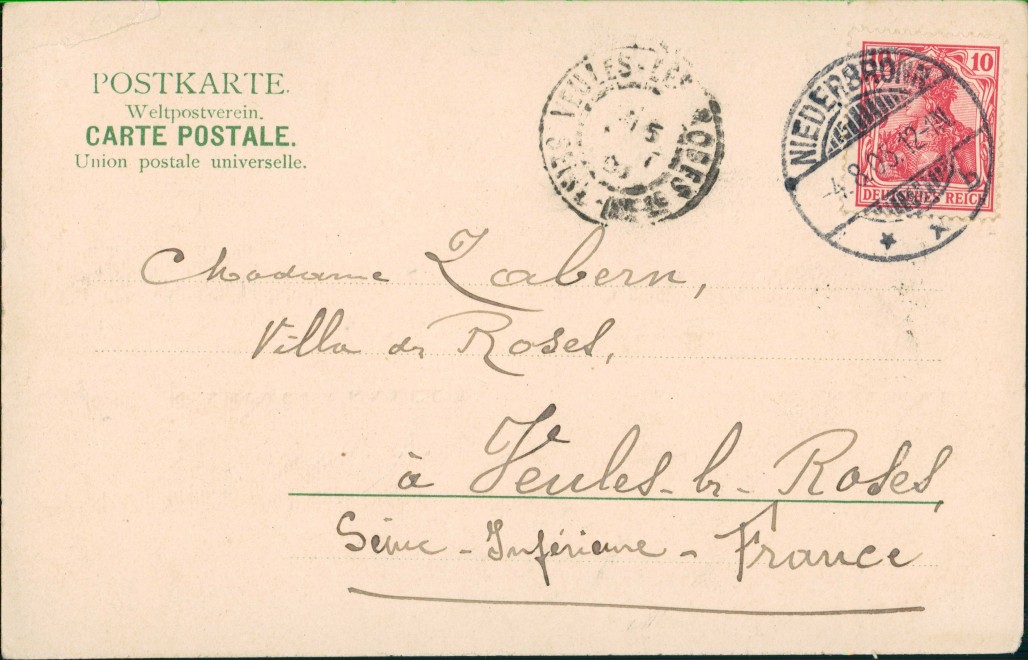 POSTKARTE.
Weltpostverein.
CARTE POSTALE.
Union postale universelle.
VEULES-LES-ROSES
NIEDERBRONN
-4.8. 12-1N
b
10
DEUTSCHES REICH
Madame Zabern,
Villa des Roses,
à Veules-les-Roses,
Seine-Inférieure-France